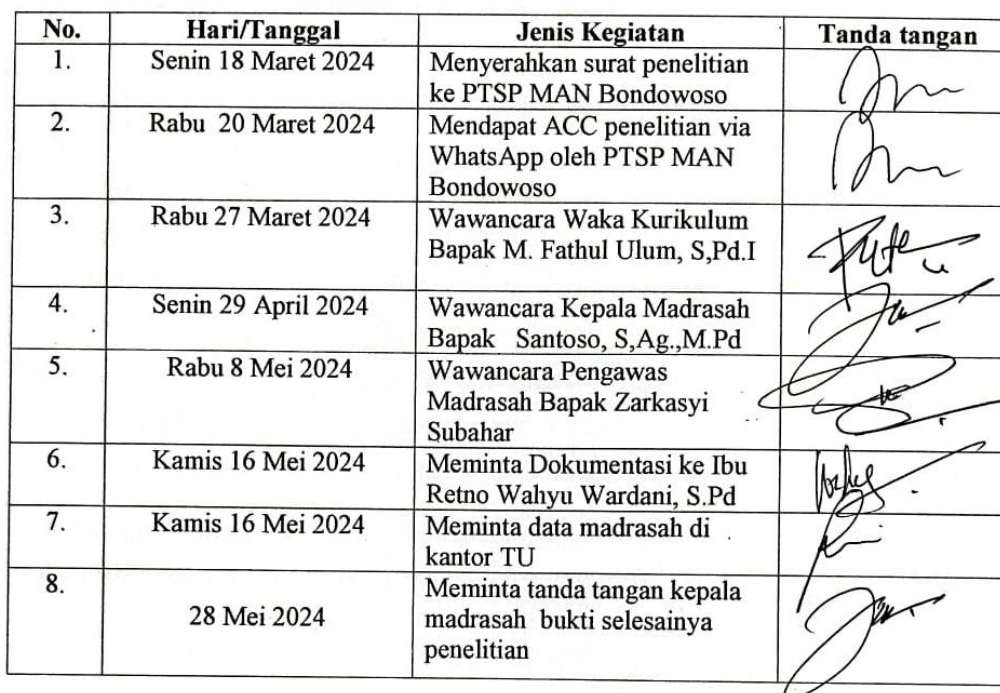 No. Hari/Tanggal Jenis Kegiatan Tanda tangan
1. Senin 18 Maret 2024 Menyerahkan surat penelitian
ke PTSP MAN Bondowoso
2. Rabu 20 Maret 2024 Mendapat ACC penelitian via
WhatsApp oleh PTSP MAN
Bondowoso
3. Rabu 27 Maret 2024 Wawancara Waka Kurikulum
Bapak M. Fathul Ulum, S,Pd.I
4. Senin 29 April 2024 Wawancara Kepala Madrasah
Bapak Santoso, S,Ag.,M.Pd
5. Rabu 8 Mei 2024 Wawancara Pengawas
Madrasah Bapak Zarkasyi
Subahar
6. Kamis 16 Mei 2024 Meminta Dokumentasi ke Ibu
Retno Wahyu Wardani, S.Pd
7. Kamis 16 Mei 2024 Meminta data madrasah di
kantor TU
8. 28 Mei 2024 Meminta tanda tangan kepala
madrasah bukti selesainya
penelitian